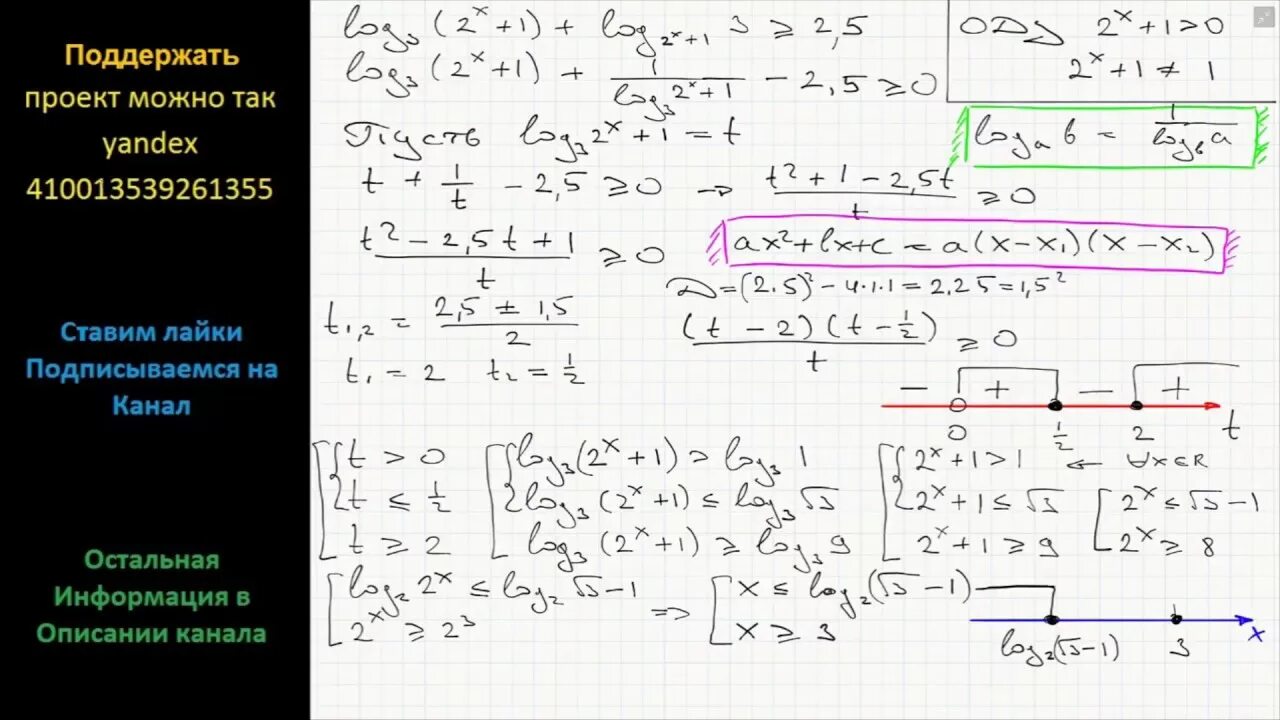 Поддержать
проект можно так
yandex
410013539261355
Ставим лайки
Подписываемся на
Канал
Остальная
Информация в
Описании канала
log₃ (2ˣ+1) + log_{2ˣ+1} 3 ≥ 2,5
ОДЗ 2ˣ+1>0
2ˣ+1 ≠ 1
log₃ (2ˣ+1) + 1/(log₃ 2ˣ+1) − 2,5 ≥ 0
Пусть log₃ 2ˣ+1 = t
logₐ b = 1/(log_b a)
t + 1/t − 2,5 ≥ 0 → (t²+1−2,5t)/t ≥ 0
(t²−2,5t+1)/t ≥ 0
ax²+bx+c = a(x−x₁)(x−x₂)
D=(2.5)²−4·1·1=2,25=1,5²
t₁,₂ = (2,5 ± 1,5)/2
(t−2)(t−1/2)/t ≥ 0
t₁=2 t₂=1/2
− + − +
0 1/2 2 t
t > 0
t ≤ 1/2
t ≥ 2
log₃(2ˣ+1) > log₃ 1
log₃ (2ˣ+1) ≤ log₃ √3
log₃ (2ˣ+1) ≥ log₃ 9
2ˣ+1>1 ← ∀x∈R
2ˣ+1≤√3
2ˣ+1≥9
2ˣ≤√3−1
2ˣ≥8
log₂ 2ˣ ≤ log₂ √3−1
2ˣ ≥ 2³
⇒
x ≤ log₂(√3−1)
x ≥ 3
log₂(√3−1) 3 x